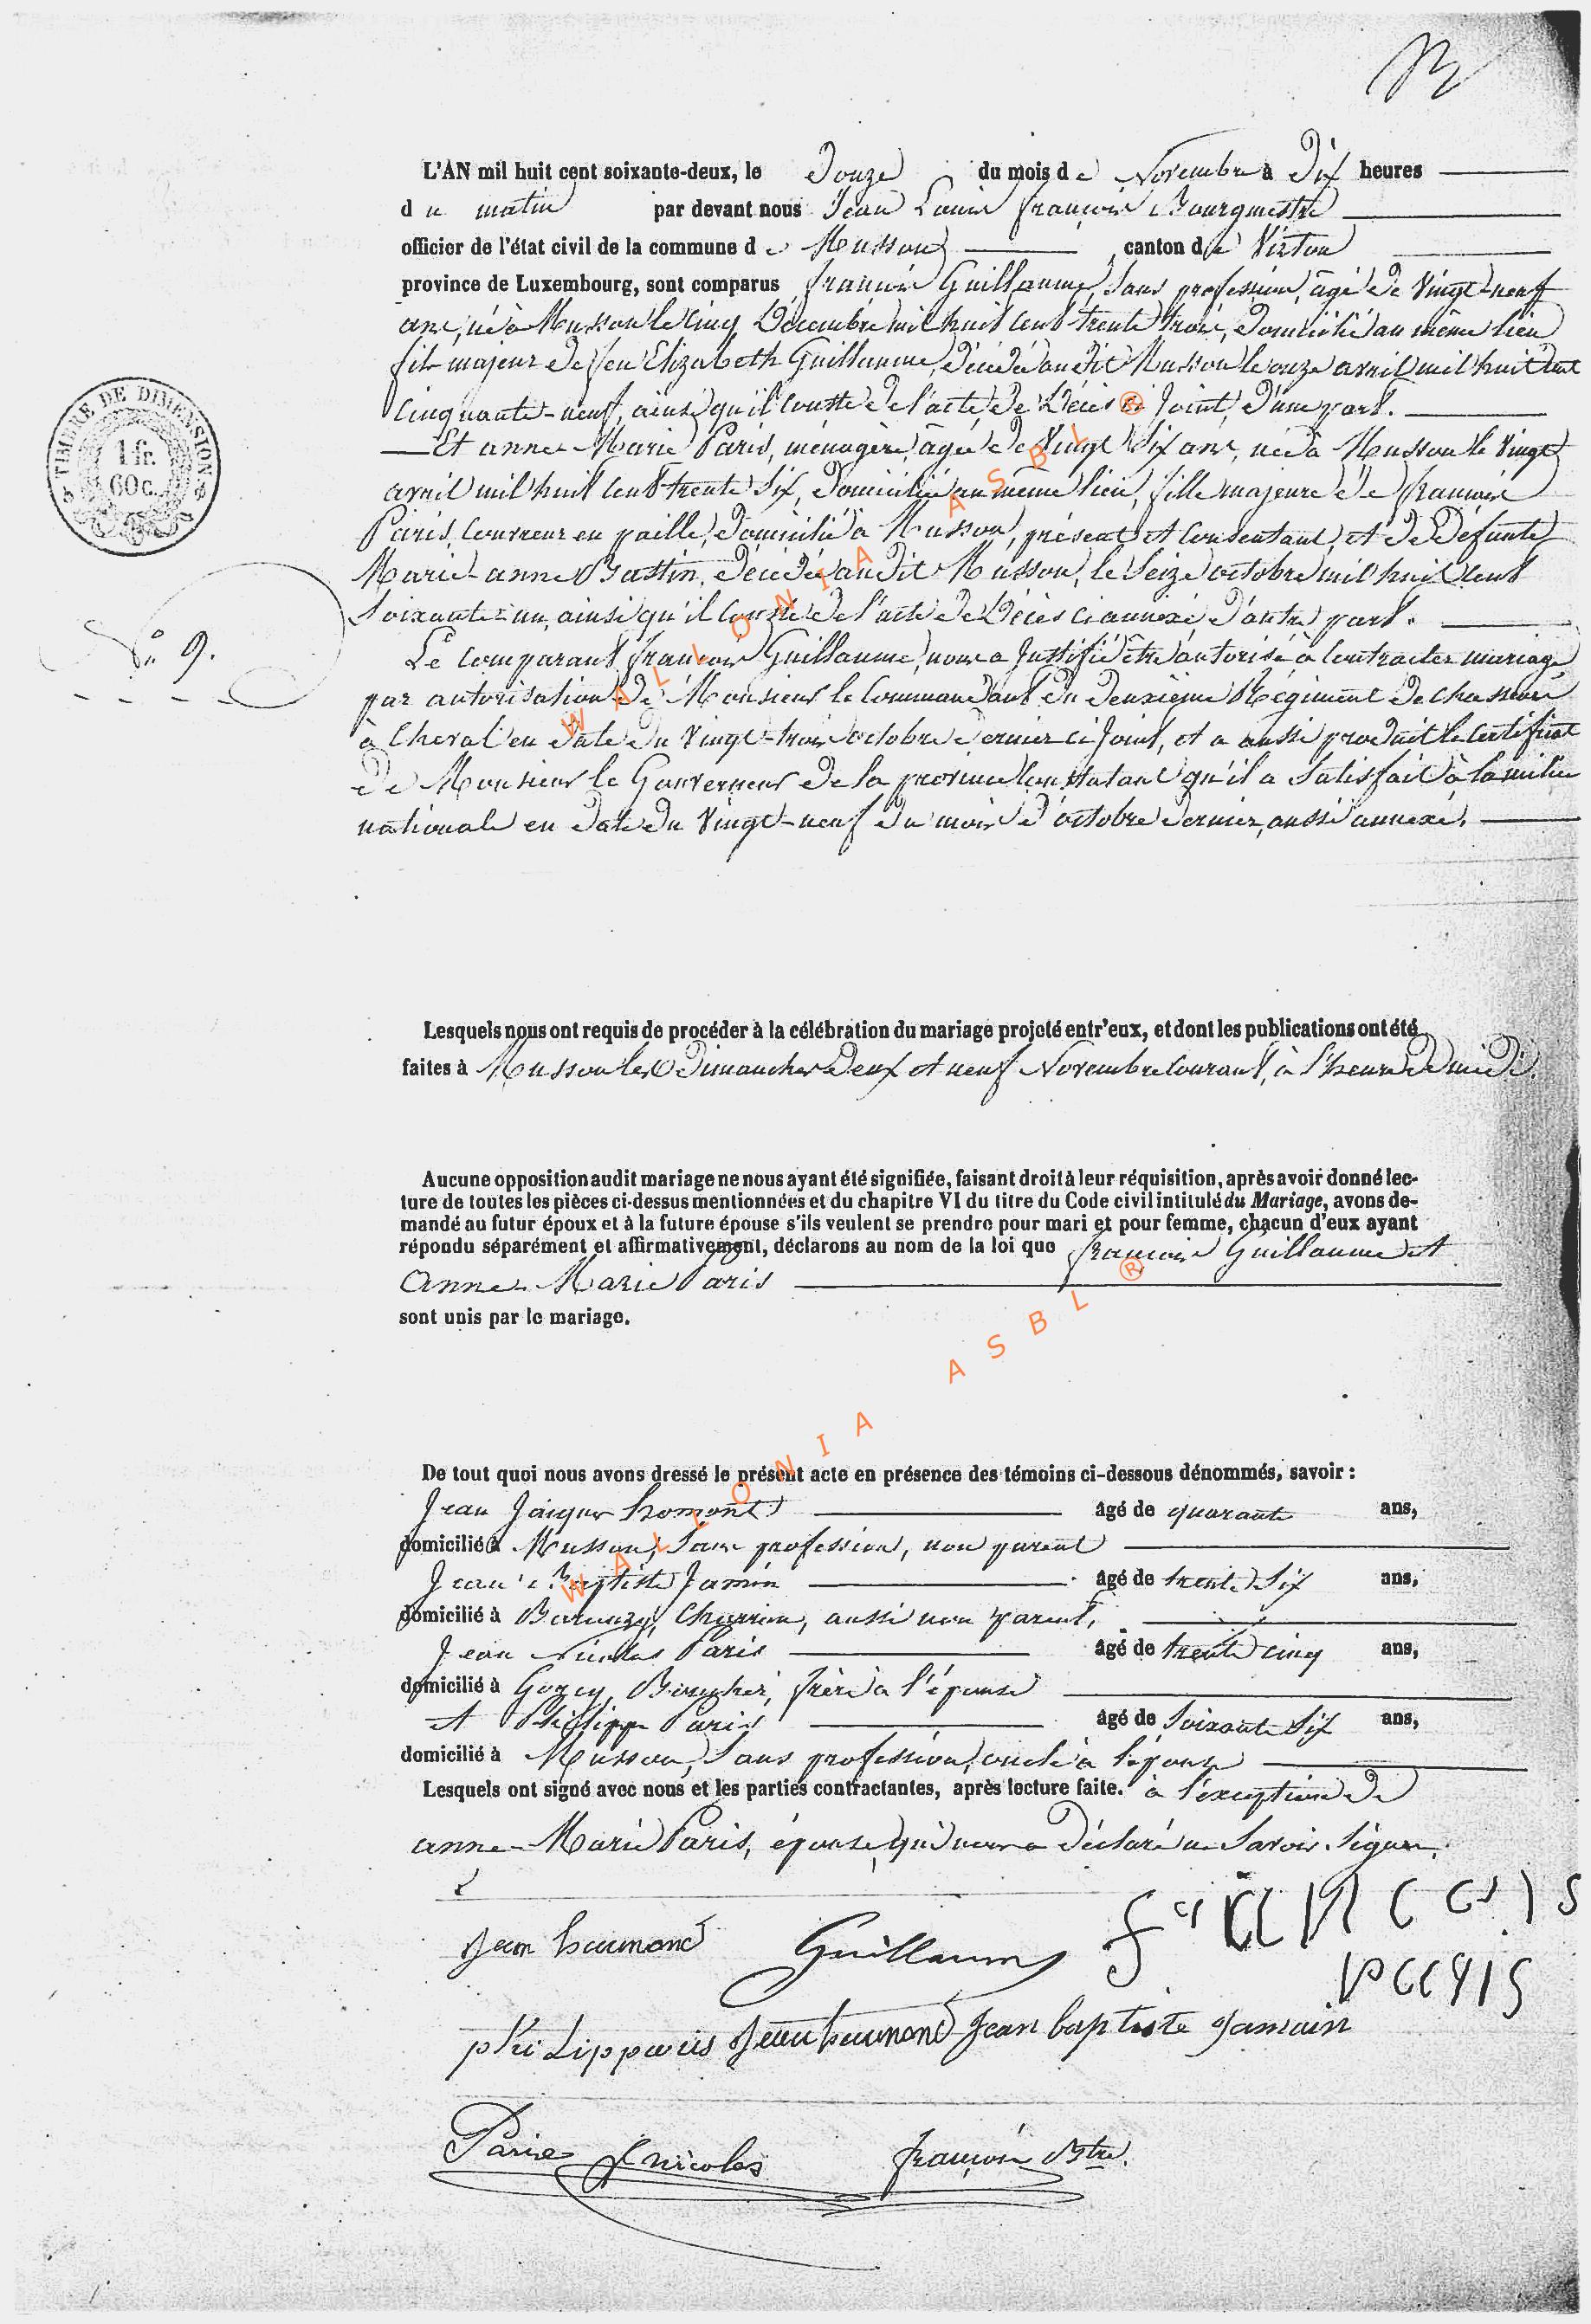 L'AN mil huit cent soixante-deux, le Douze du mois de Novembre à Dix heures
du matin par devant nous Jean Louis françois Bourgmestre
officier de l'état civil de la commune de Musson canton de Virton
province de Luxembourg, sont comparus françois Guillaume, Sans profession, âgé de Vingt-neuf
ans, né à Musson le cinq Décembre mil huit cent trente trois, Domicilié au même lieu
fils majeur de feu Elizabeth Guillaume, décédée audit Musson le onze avril mil huit cent
Cinquante-neuf, ainsi qu'il conste de l'acte de Décès ci Joint, d'une part.
Et anne-Marie Paris, ménagère, âgée de Vingt Six ans, née à Musson le Vingt
avril mil huit cent trente Six, Domiciliée au même lieu, fille majeure de françois
Paris, couvreur en paille, domicilié à Musson, présent et consentant, et de Défunte
Marie-anne Bastin, décédée audit Musson, le Seize octobre mil huit cent
Soixante-un, ainsi qu'il conste de l'acte de Décès ci annexé d'autre part.
N° 9.
Le comparant françois Guillaume, nous a Justifié être autorisé à contracter mariage
par autorisation de Monsieur le Commandant du Deuxième Régiment de chasseurs
à Cheval en date du Vingt-trois octobre dernier ci Joint, et a aussi produit le Certificat
de Monsieur le Gouverneur de la province Constatant qu'il a Satisfait à la milice
nationale en date du Vingt-neuf du mois d'octobre dernier, aussi annexé.
TIMBRE DE DIMENSION
1 fr.
60 c.
Lesquels nous ont requis de procéder à la célébration du mariage projeté entr'eux, et dont les publications ont été
faites à Musson les Dimanches Deux et neuf Novembre Courant, à l'heure de midi.
Aucune opposition audit mariage ne nous ayant été signifiée, faisant droit à leur réquisition, après avoir donné lec-
ture de toutes les pièces ci-dessus mentionnées et du chapitre VI du titre du Code civil intitulé du Mariage, avons de-
mandé au futur époux et à la future épouse s'ils veulent se prendre pour mari et pour femme, chacun d'eux ayant
répondu séparément et affirmativement, déclarons au nom de la loi que françois Guillaume et
Anne-Marie Paris
sont unis par le mariage.
De tout quoi nous avons dressé le présent acte en présence des témoins ci-dessous dénommés, savoir :
Jean Jacques homont âgé de quarante ans,
domicilié à Musson, Sans profession, non parent
Jean Baptiste Jamin âgé de trente Six ans,
domicilié à Baranzy, Charron, aussi non parent,
Jean Nicolas Paris âgé de trente cinq ans,
domicilié à Gorcy, Boucher, frère à l'épouse
et Philippe Paris âgé de Soixante Six ans,
domicilié à Musson, Sans profession, oncle à l'épouse
Lesquels ont signé avec nous et les parties contractantes, après lecture faite. à l'exception de
anne-Marie Paris, épouse, qui nous a Déclaré ne Savoir Signer.
Jean haumont Guillaume francois
paris
phi Lipp paris Jean haumont Jean baptiste Jamain
Paris J nicolas françois Bstre.
WALLONIA ASBL ®
WALLONIA ASBL ®